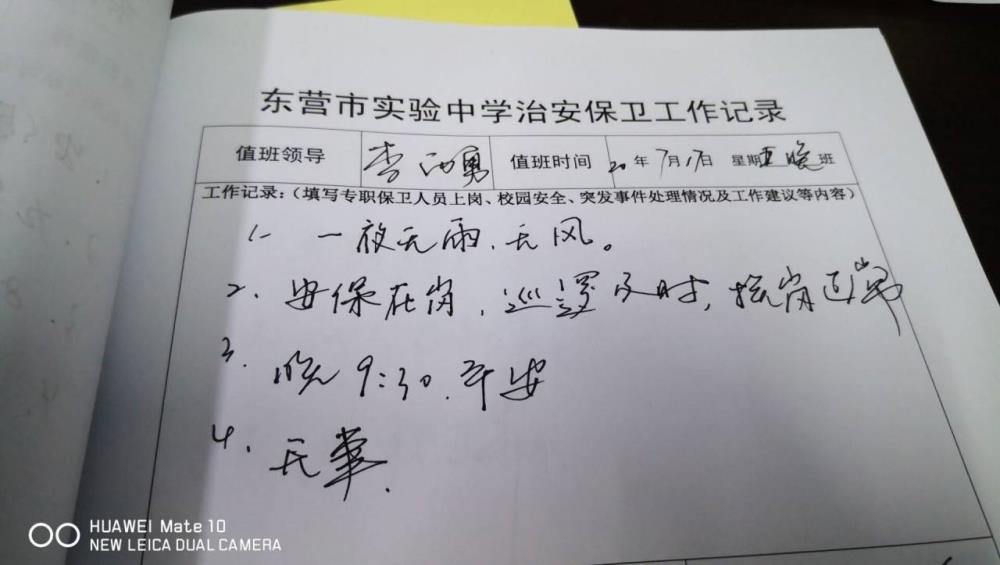 东营市实验中学治安保卫工作记录
值班领导 李 勇 值班时间 20年7月17日 星期五 晚班
工作记录:(填写专职保卫人员上岗、校园安全、突发事件处理情况及工作建议等内容)
1. 一夜无雨、无风。
2. 安保在岗,巡逻及时,按岗
3. 晚9:30.平安
4. 正常.
HUAWEI Mate 10
NEW LEICA DUAL CAMERA